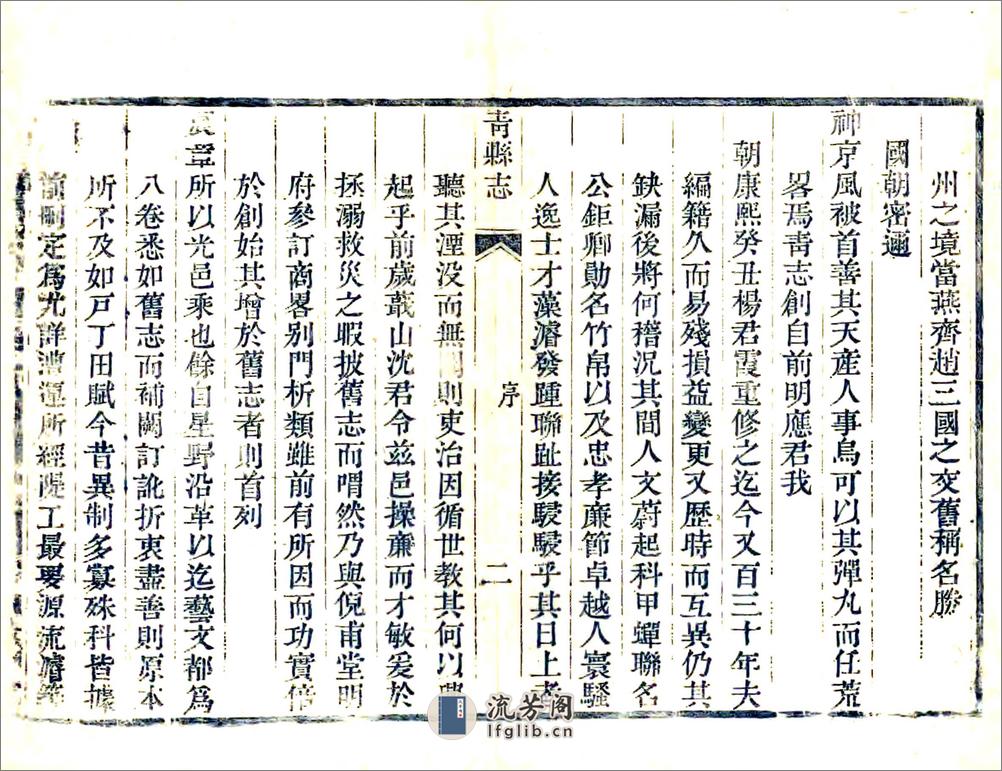 州之境當燕齊趙三國之交舊稱名勝
國朝密邇
神京風被首善其天產人事烏可以其彈丸而任荒
畧焉青志創自前明應君我
朝康熙癸丑楊君霞重修之迄今又百三十年夫
編籍久而易殘損益變更又歷時而互異仍其
缺漏後將何稽況其間人文蔚起科甲蟬聯名
公鉅卿勛名竹帛以及忠孝廉節卓越人寰騷
人逸士才藻濬發踵聯趾接駸駸乎其日上者
青縣志
序
二
聽其湮没而無則吏治因循世教其何以興
起乎前歲蕺山沈君令兹邑操廉而才敏爰於
拯溺救災之暇披舊志而喟然乃與倪甫堂明
府參訂商畧别門析類雖前有所因而功實倍
於創始其增於舊志者則首列
宸章所以光邑乘也餘自星野沿革以迄藝文都爲
八卷悉如舊志而補闕訂訛折衷盡善則原本
所不及如戸丁田賦今昔異制多寡殊科皆據
定爲尤詳漕運所經隄工最要源流濬築
流芳阁
lfglib.cn